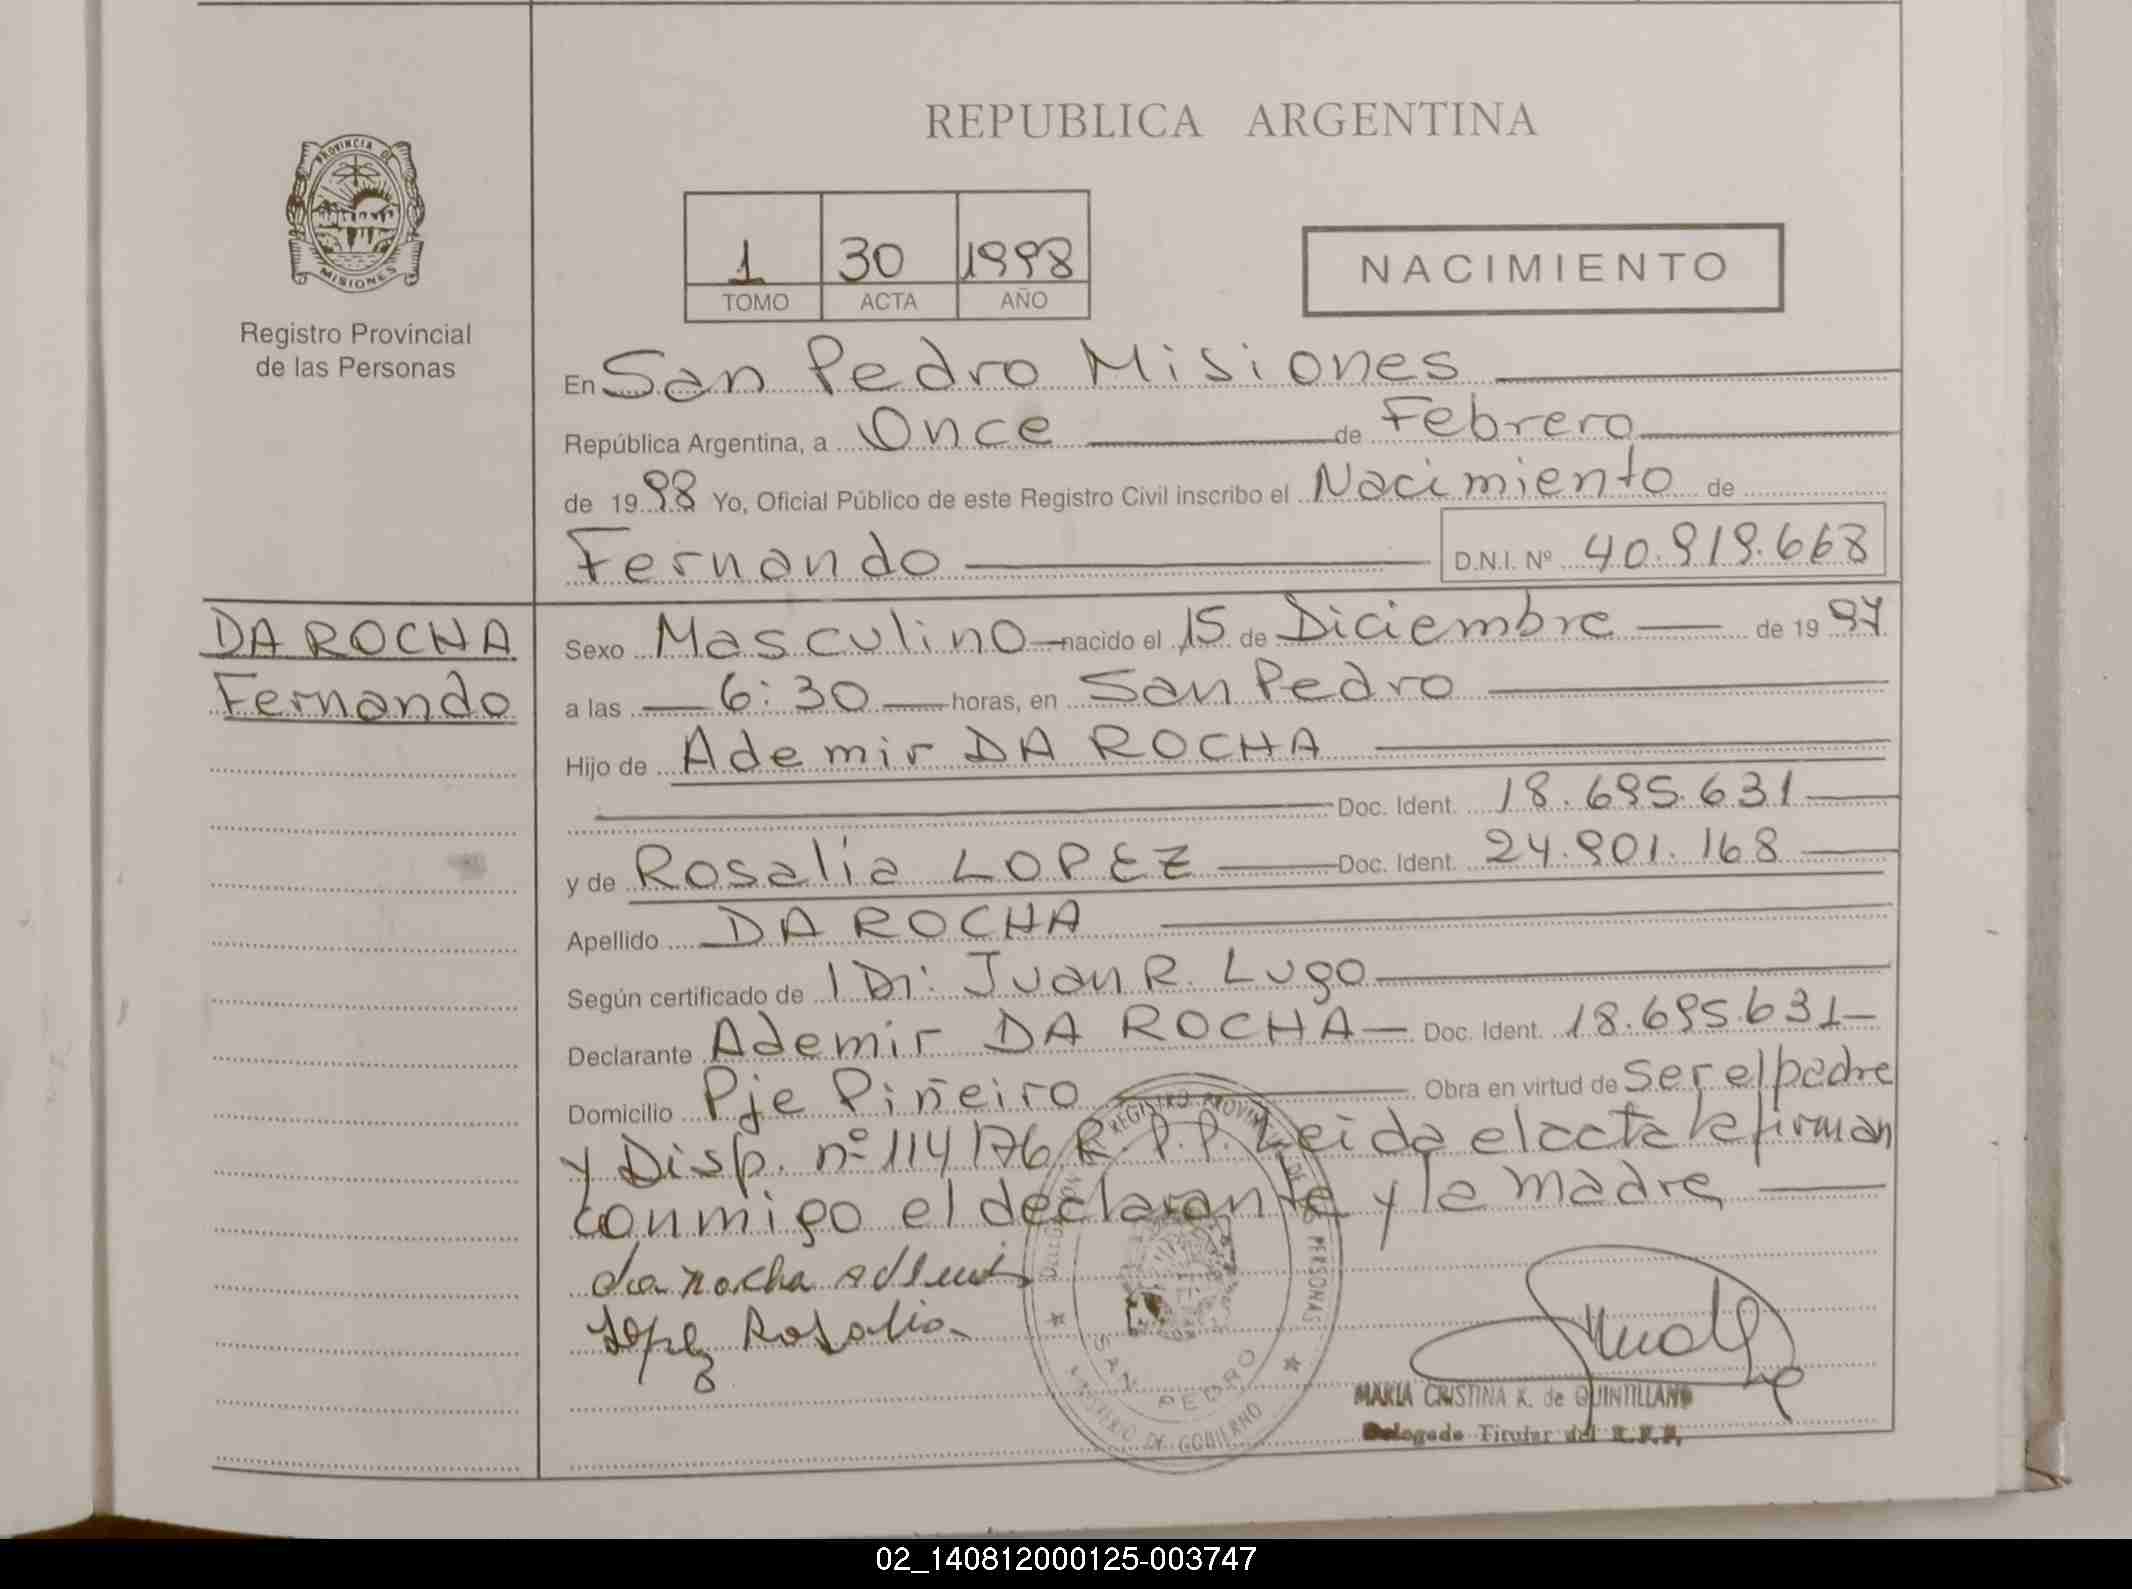 REPUBLICA ARGENTINA
PROVINCIA DE
MISIONES
Registro Provincial
de las Personas
1 30 1998
TOMO ACTA AÑO
NACIMIENTO
En San Pedro Misiones
República Argentina, a Once de Febrero
de 1998 Yo, Oficial Público de este Registro Civil inscribo el Nacimiento de
Fernando D.N.I. Nº 40.919.668
DA ROCHA
Fernando
Sexo Masculino nacido el 15 de Diciembre de 1997
a las 6:30 horas, en San Pedro
Hijo de Ademir DA ROCHA
Doc. Ident. 18.695.631
y de Rosalia LOPEZ Doc. Ident. 24.901.168
Apellido DA ROCHA
Según certificado de Dr: Juan R. Lugo
Declarante Ademir DA ROCHA Doc. Ident. 18.695.631
Domicilio Pje Piñeiro Obra en virtud de ser el padre
y Disp. nº 114/76 R. P.P. Leida el acta la firman
conmigo el declarante y la madre
da rocha ademir
Lopez Rosalia
REGISTRO PROVINCIAL DE LAS PERSONAS
SAN PEDRO
MINISTERIO DE GOBIERNO
MARIA CRISTINA K. de QUINTILLANO
Delegado Titular del R.P.P.
02_140812000125-003747